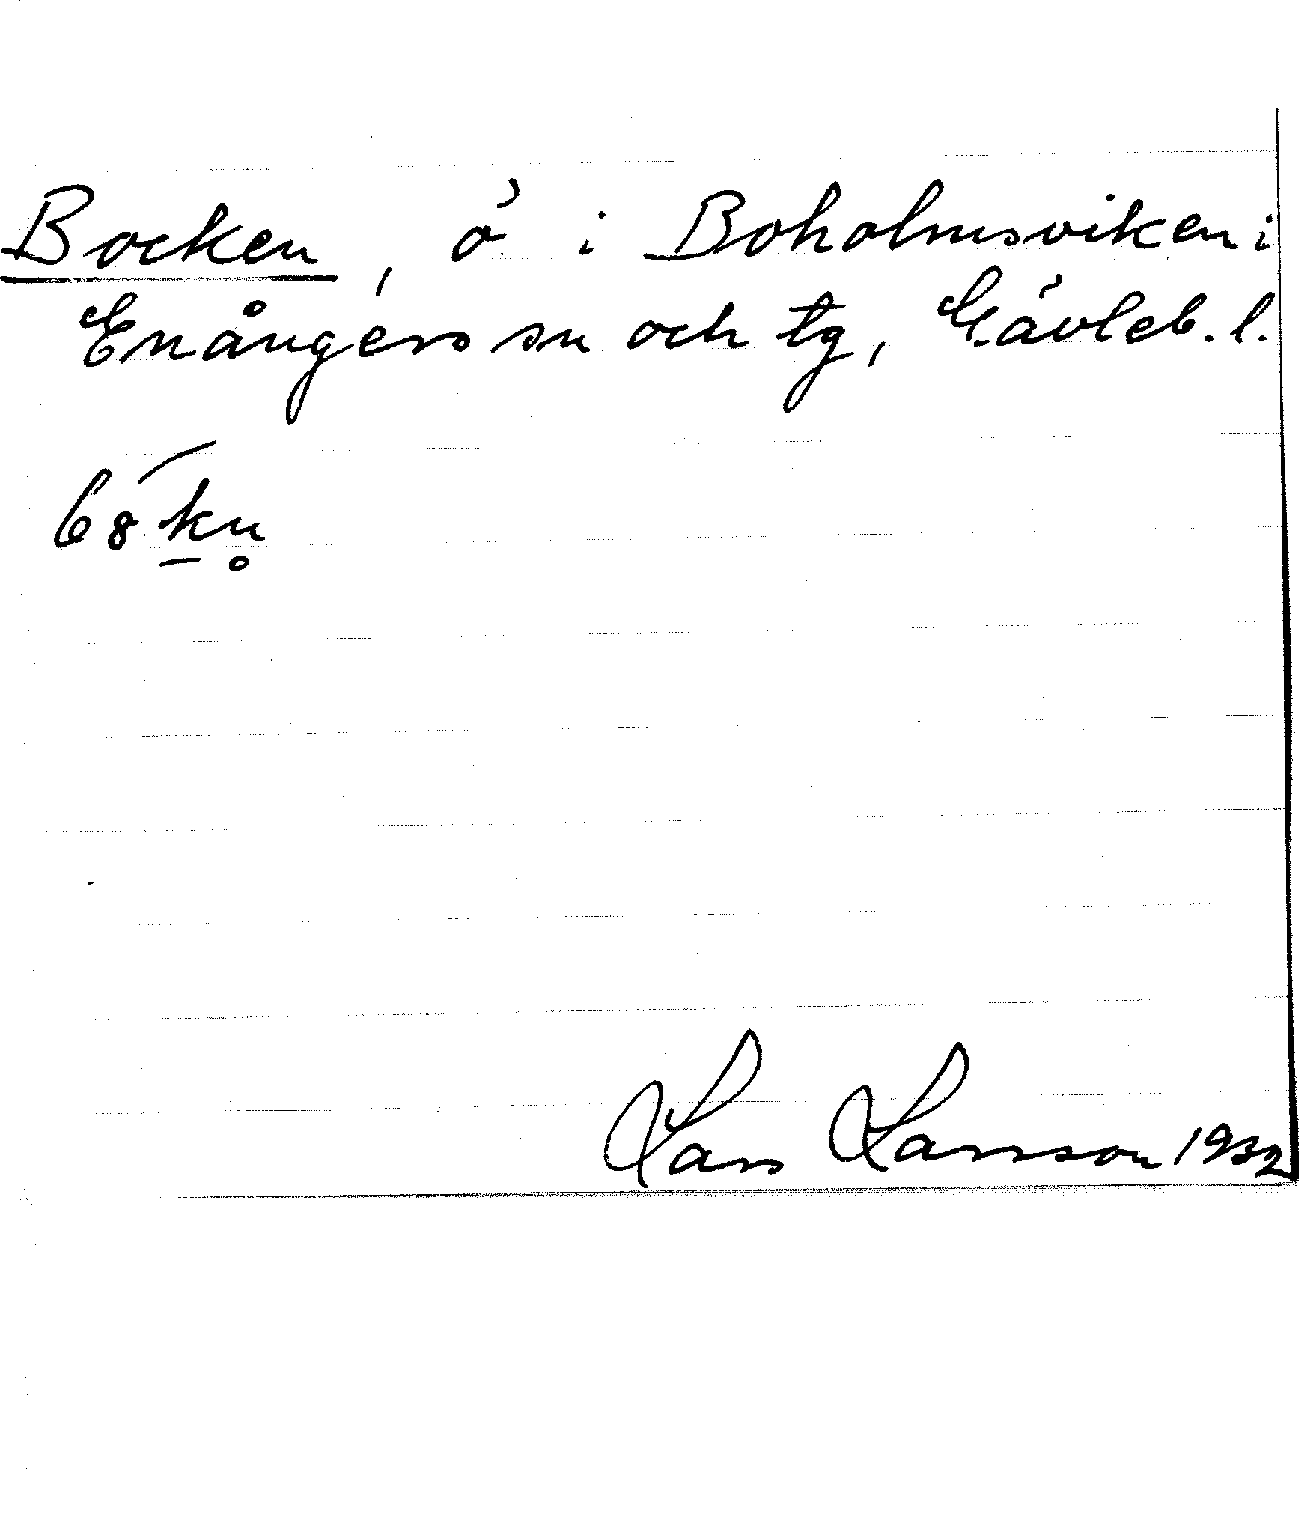 Bocken, ö i Boholmsviken i
Enångers sn och tg, Gävleb. l.
Lars Larsson 1932